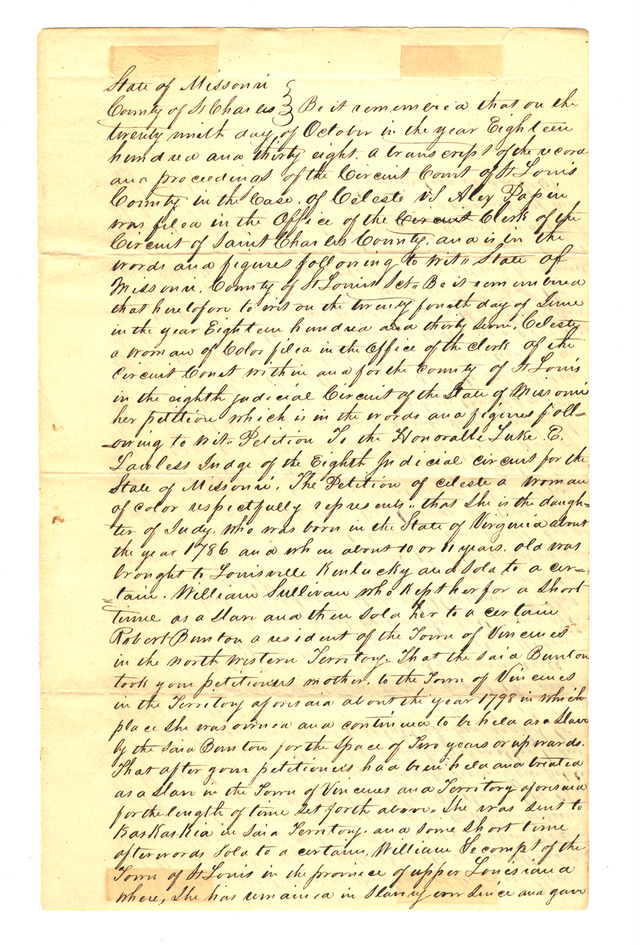 State of Missouri
County of St Charles } Be it remembered that on the
twenty ninth day of October in the year Eighteen
hundred and thirty eight. a transcript of the record
and proceedings of the Circuit Court of St Louis
County in the Case. of Celeste vs Alex Papin
was filed in the Office of the Circuit Clerk of the
Circuit of Saint Charles County. and is in the
words and figures following to wit" State of
Missouri. County of St Louis Sct. Be it remembered
that heretofore to wit on the twenty fourth day of June
in the year Eighteen hundred and thirty seven, Celeste
a woman of Color filed in the Office of the clerk of the
Circuit Court within and for the County of St Louis
in the eighth judicial Circuit of the State of Missouri
her petition which is in the words and figures foll-
-owing to wit- Petition To the Honorable Luke E.
Lawless Judge of the Eighth Judicial circuit for the
State of Missouri. The Petition of celeste a woman
of color respectfully represents.. that she is the daugh-
ter of Judy. who was born in the State of Virginia about
the year 1786 and when about 10 or 11 years. old was
brought to Louisville Kentucky and sold to a cer-
tain. William Sullivan who kept her for a short
time as a Slave and then sold her to a certain
Robert Bunton a resident of the Town of Vincenes
in the North Western Territory. That the said Bunton
took your petitioners mother. to the Town of Vincenes
in the Territory aforesaid about the year 1798 in which
place she was owned and continued to be held as a Slave
by the said Bunton for the Space of Two years or upwards.
That after your petitioners had been held and treated
as a Slave in the Town of Vincenes and Territory aforesaid
for the length of time set forth above. She was sent to
Kaskaskia in said Territory. and some short time
afterwords sold to a certain, William Lecompt of the
Town of St Louis in the province of upper Louisiana
where, she has remained in Slavery ever since and gave